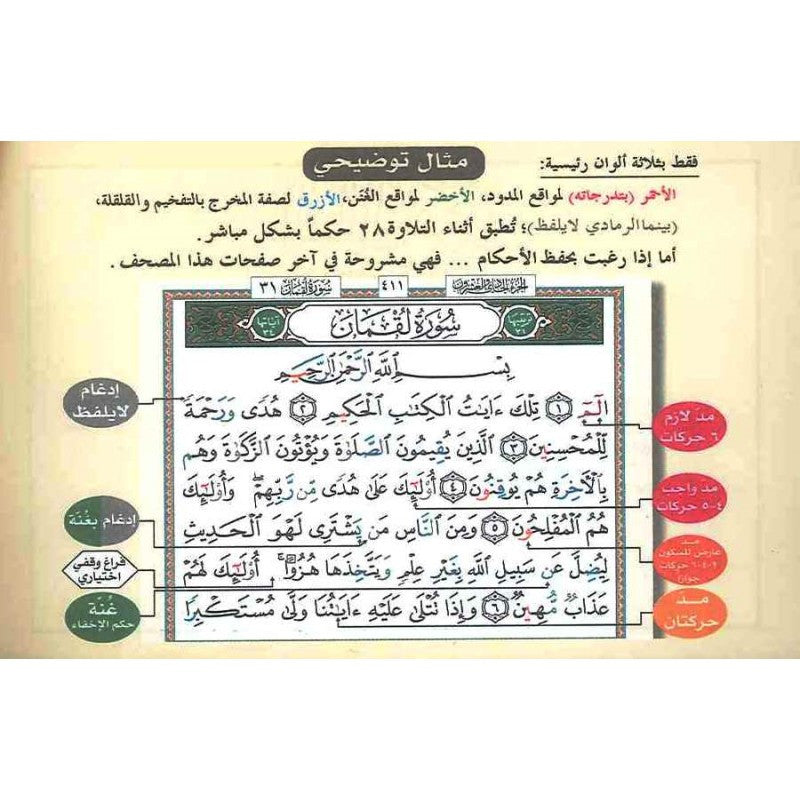 فقط بثلاثة ألوان رئيسية: مثال توضيحي
الأحمر (بتدرجاته) لمواقع المدود، الأخضر لمواقع الغُنَن، الأزرق لصفة المخرج بالتفخيم والقلقلة،
(بينما الرمادي لايلفظ)؛ تُطبق أثناء التلاوة ٢٨ حكماً بشكل مباشر.
أما إذا رغبت بحفظ الأحكام ... فهي مشروحة في آخر صفحات هذا المصحف.
الجزء الحادي والعشرون ٤١١ سورة لقمان ٣١
ترتيبها ٣١ سُورَةُ لُقْمَان آياتها ٣٤
بِسْمِ اللَّهِ الرَّحْمَٰنِ الرَّحِيمِ
الٓمٓ ۝١ تِلْكَ ءَايَٰتُ الْكِتَٰبِ الْحَكِيمِ ۝٢ هُدًى وَرَحْمَةً
لِّلْمُحْسِنِينَ ۝٣ الَّذِينَ يُقِيمُونَ الصَّلَوٰةَ وَيُؤْتُونَ الزَّكَوٰةَ وَهُم
بِالْأٓخِرَةِ هُمْ يُوقِنُونَ ۝٤ أُوْلَٰٓئِكَ عَلَىٰ هُدًى مِّن رَّبِّهِمْ ۖ وَأُوْلَٰٓئِكَ
هُمُ الْمُفْلِحُونَ ۝٥ وَمِنَ النَّاسِ مَن يَشْتَرِى لَهْوَ الْحَدِيثِ
لِيُضِلَّ عَن سَبِيلِ اللَّهِ بِغَيْرِ عِلْمٍ وَيَتَّخِذَهَا هُزُوًا ۚ أُوْلَٰٓئِكَ لَهُمْ
عَذَابٌ مُّهِينٌ ۝٦ وَإِذَا تُتْلَىٰ عَلَيْهِ ءَايَٰتُنَا وَلَّىٰ مُسْتَكْبِرًا
مدّ لازم
٦ حركات
مدّ واجب
٤-٥ حركات
مدّ
عارض للسكون
٢-٤-٦ حركات
جوازاً
مدّ
حركتان
إدغام
لايلفظ
إدغام بغُنّة
فراغ وقفي
اختياري
غُنّة
حكم الإخفاء